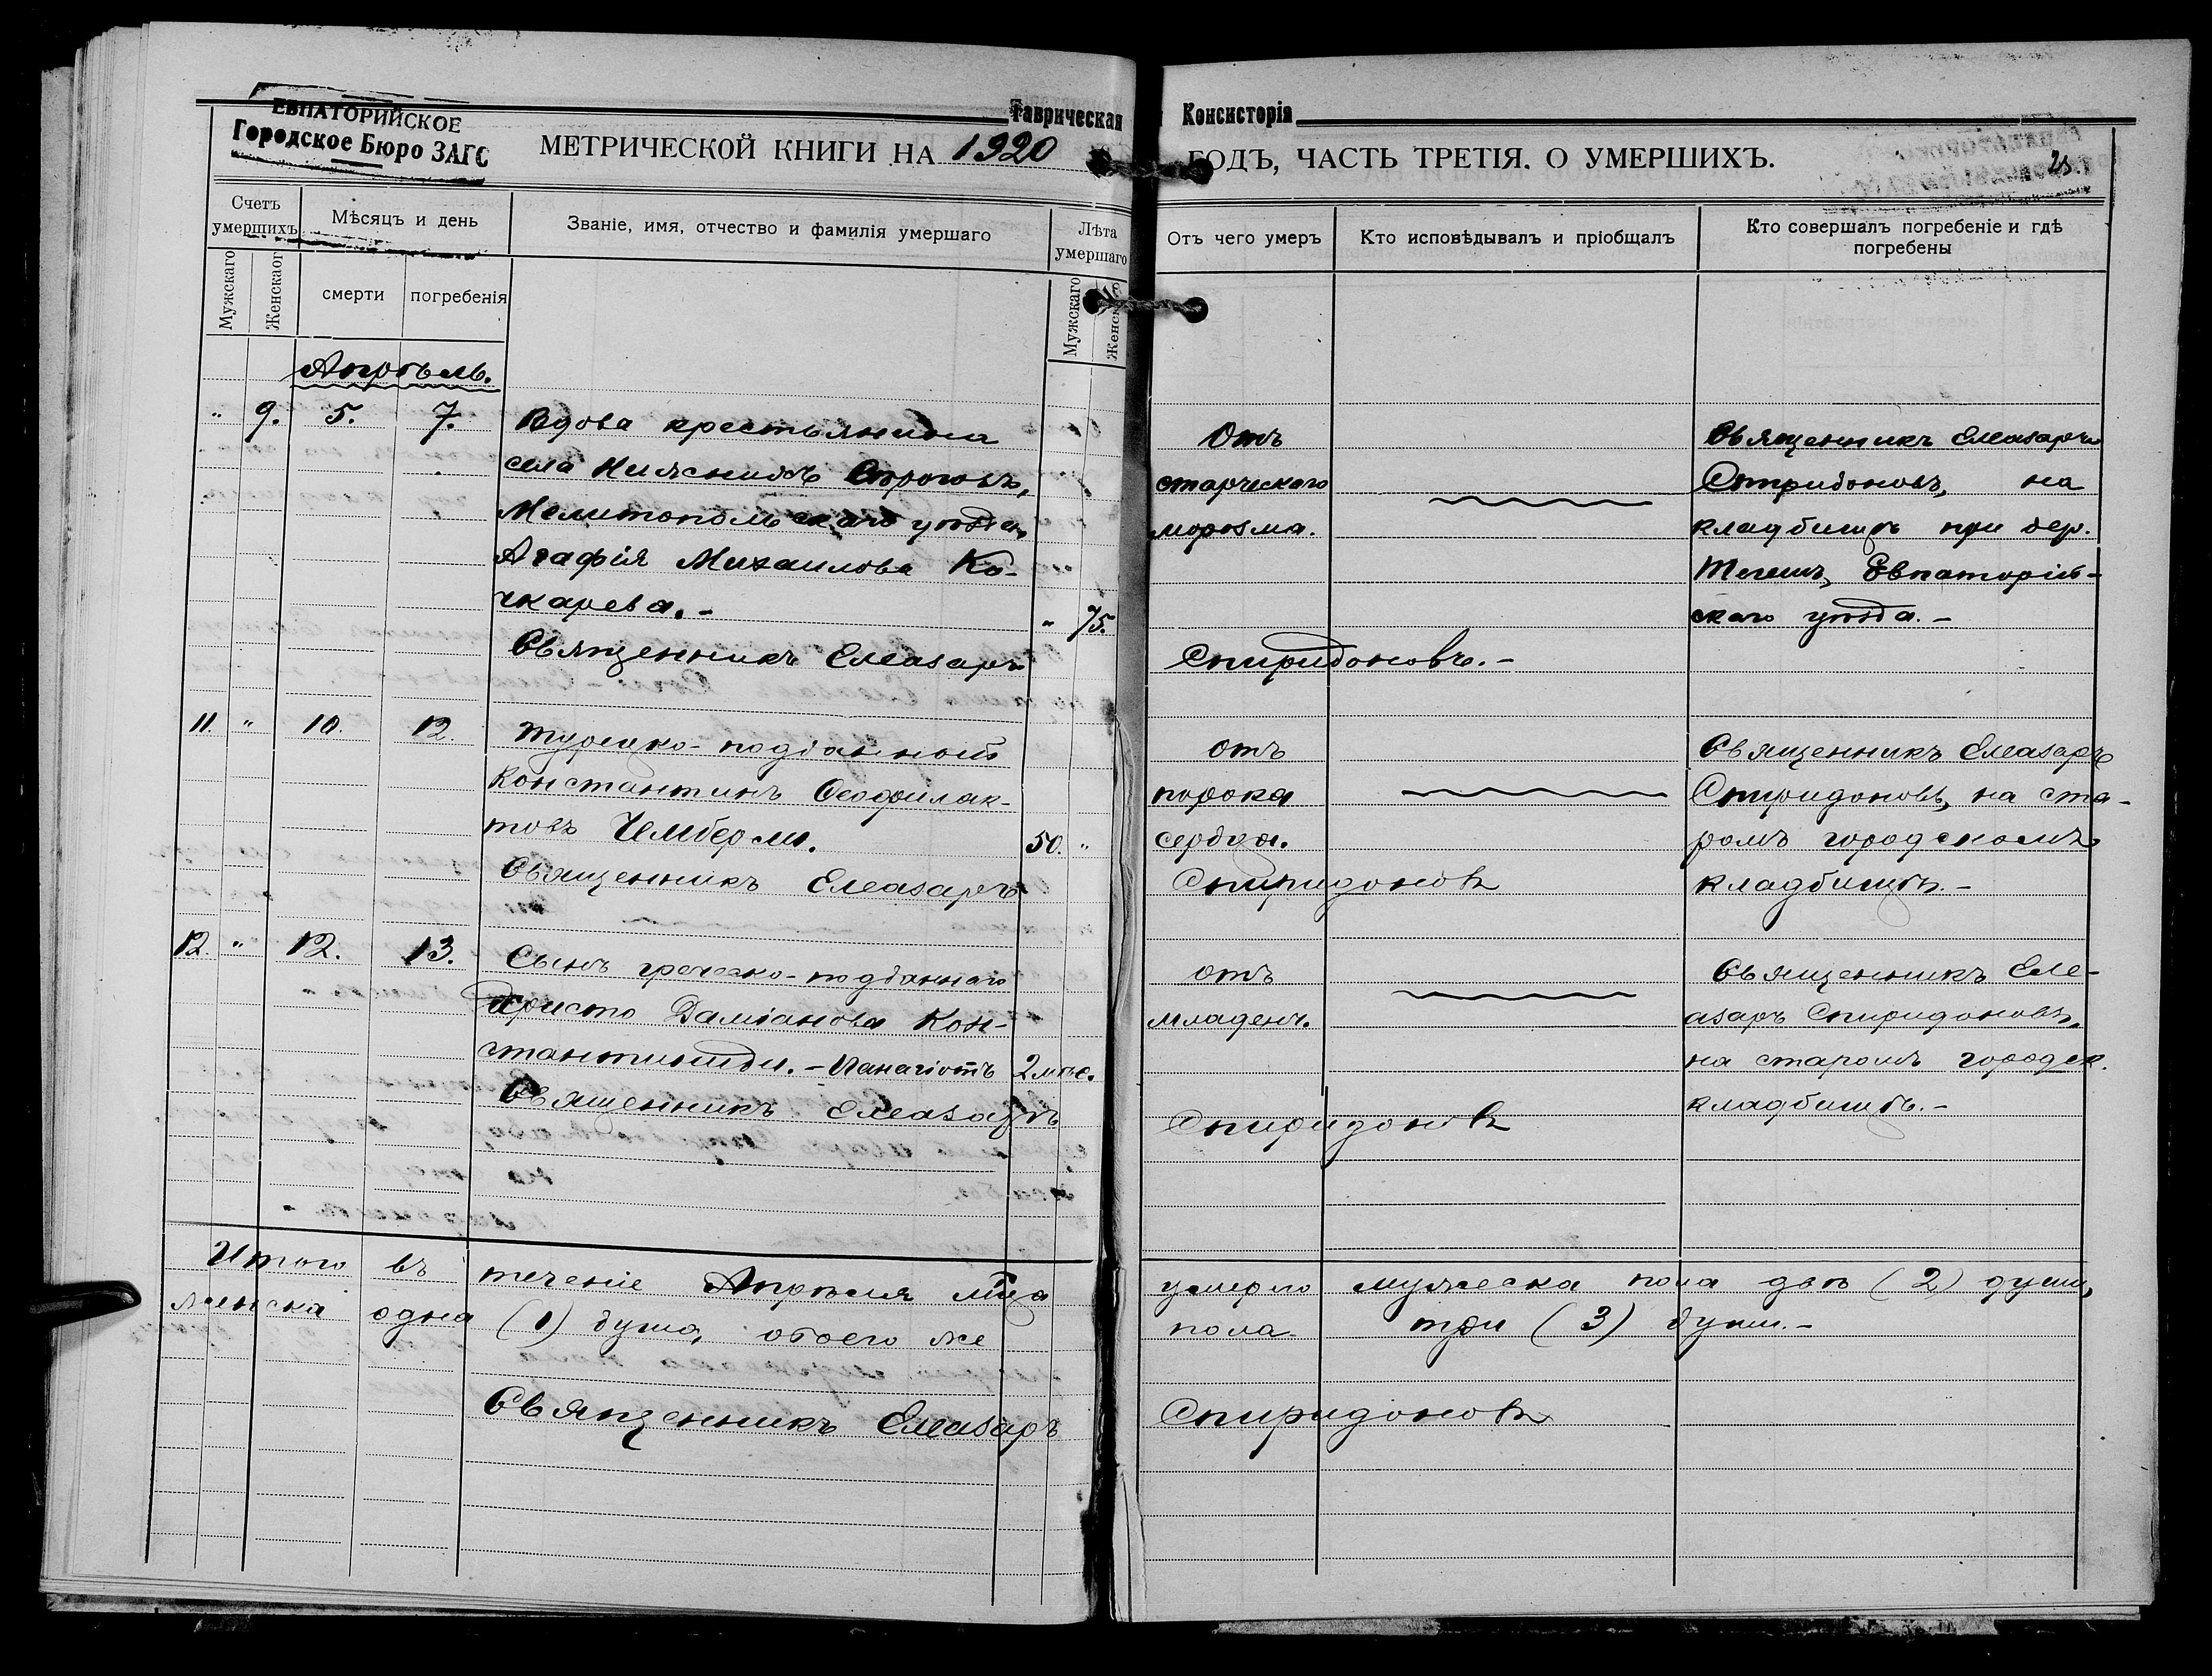 ЕВПАТОРИЙСКОЕ
Городское Бюро ЗАГС
Таврическая Консисторія
МЕТРИЧЕСКОЙ КНИГИ НА 1920 ГОДЪ, ЧАСТЬ ТРЕТІЯ. О УМЕРШИХЪ.
Счетъ умершихъ
Мѣсяцъ и день
Званіе, имя, отчество и фамилія умершаго
Лѣта умершаго
Отъ чего умеръ
Кто исповѣдывалъ и пріобщалъ
Кто совершалъ погребеніе и гдѣ погребены
Мужскаго
Женскаог
смерти
погребенія
Мужскаго
Женск
Апрѣль.
" 9. 5. 7.
Вдова крестьянина
села
Мелитопольскаго уѣзда,
Агафія Михаилова Ко-
чкарева.-
" 75.
Отъ
старческаго
моразма.
Священникъ Елеазаръ
Спиридоновъ, на
кладбищѣ при дер.
Тегешъ, Евпаторій-
скаго уѣзда.-
Священникъ Елеазаръ Спиридоновъ.-
11. " 10. 12.
Турецко-подданный
Константинъ Феофилак-
товъ
50. "
отъ
порока
сердца.
Священникъ Елеазаръ
Спиридоновъ, на ста-
ромъ городскомъ
кладбищѣ.-
Священникъ Елеазаръ Спиридоновъ
12. " 12. 13.
Сынъ греческо-подданнаго
Христо Даміанова Кон-
стантиниди.-Панагіотъ
2 мѣс.
отъ
младенч.
Священникъ Еле-
азаръ Спиридоновъ,
на старомъ городск.
кладбищѣ.-
Священникъ Елеазаръ Спиридоновъ
Итого въ теченіе Апрѣля м̃ца умерло мужеска пола двѣ (2) души,
женска одна (1) душа, обоего же пола- три (3) души.-
Священникъ Елеазаръ Спиридоновъ